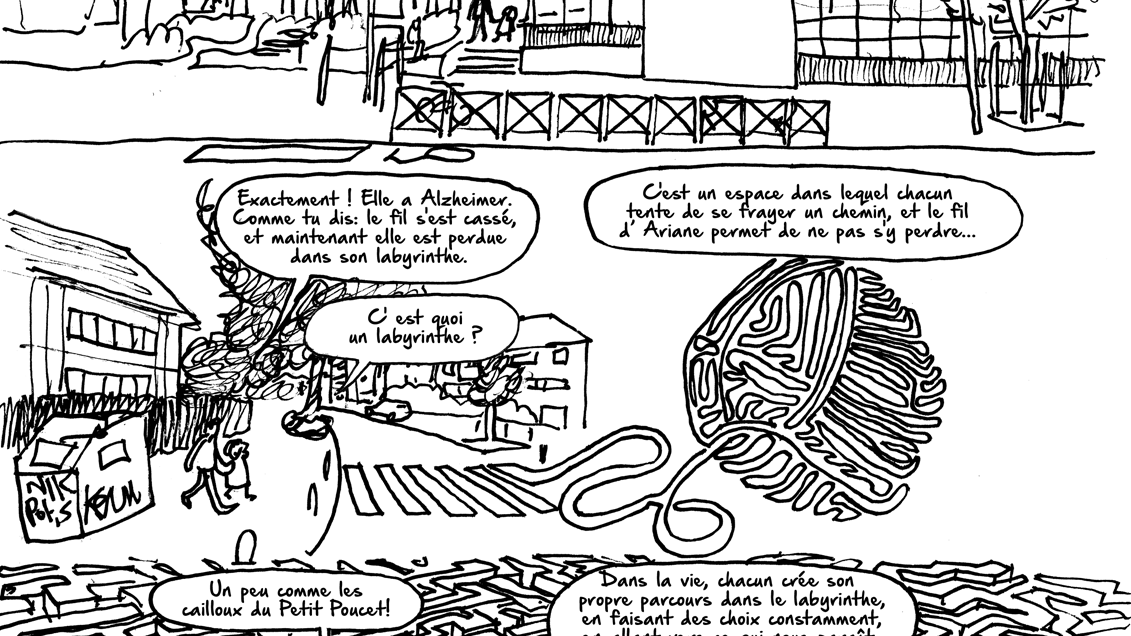 Exactement ! Elle a Alzheimer.
Comme tu dis: le fil s'est cassé,
et maintenant elle est perdue
dans son labyrinthe.
C'est un espace dans lequel chacun
tente de se frayer un chemin, et le fil
d' Ariane permet de ne pas s'y perdre...
C' est quoi
un labyrinthe ?
NIK
Un peu comme les
cailloux du Petit Poucet!
Dans la vie, chacun crée son
propre parcours dans le labyrinthe,
en faisant des choix constamment,